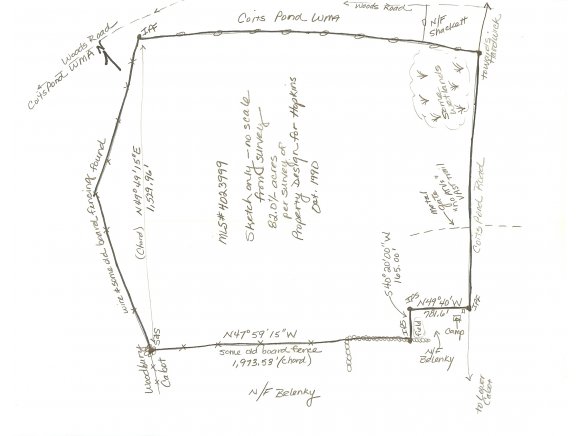 Woods Road
Coits Pond WMA
N/F
Shackett
towards
Hardwick
Woods Road
Coits Pond WMA
N
IPF
some
wetlands
MLS# 4023999
Sketch only - no scale
from survey
82.0+/- acres
per survey of
Property Design for Hopkins
Oct. 1990
(Chord) N49°49'15"E
1,529.96'
wire & some old board fencing found
metal
gate
"no ATVs"
Coits Pond Road
S40°20'00"W
165.00'
IPS
N49°40'W
781.6'
IPF
IPS
Field
Camp
N/F
Belenky
SAS
N47°59'15"W
some old board fence
1,973.53' (chord)
Woodbury
Cabot
N/F Belenky
to Lower
Cabot